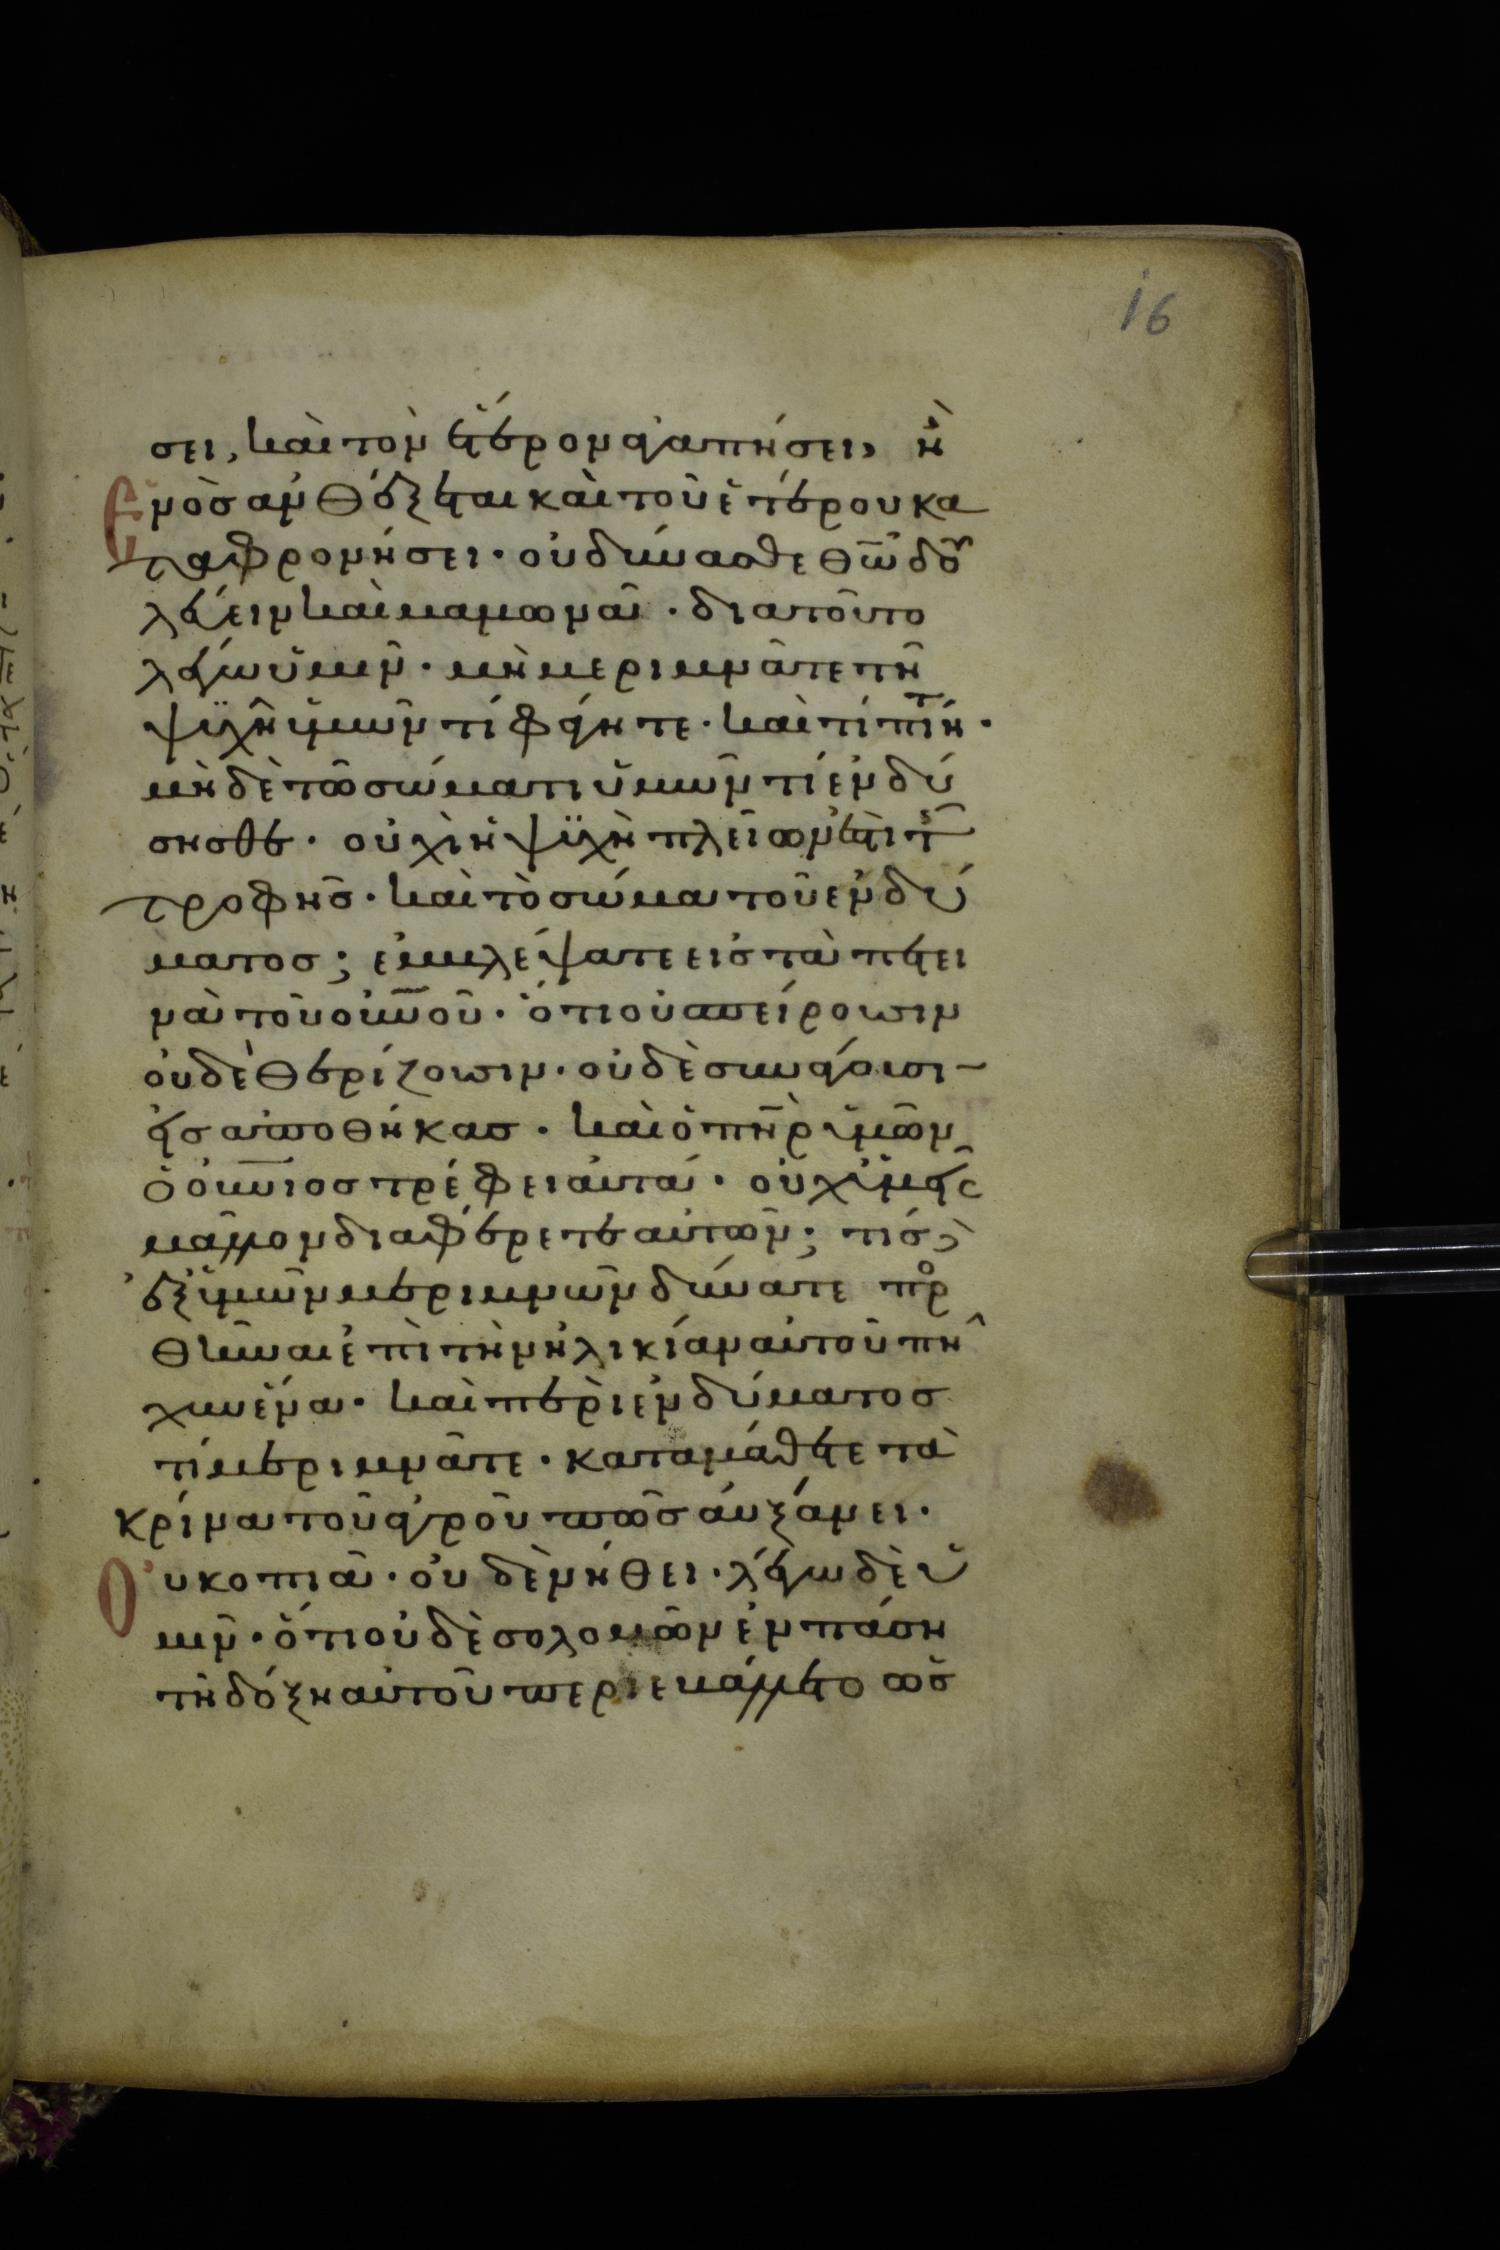 16
σει, καὶ τὸν ἕτερον ἀγαπήσει, ἢ
ἑνὸς ἀνθέξεται καὶ τοῦ ἑτέρου κα
ταφρονήσει· οὐ δύνασθε θ̅ω̅ δου
λεύειν καὶ μαμωνᾶ· διατοῦτο
λέγω ὑμῖν· μὴ μεριμνᾶτε τῆ
ψυχῆ ὑμῶν τί φάγητε· καὶ τί πίητ·
μὴ δὲ τῶ σώματι ὑμῶν τί ἐνδύ
σησθε· οὐχὶ ἡ ψυχὴ πλεῖων ἐστὶ τῆς
τροφῆς· καὶ τὸ σώμα τοῦ ἐνδύ
ματος; ἐμβλέψατε εἰς τὰ πετει
νὰ τοῦ ου̅νοῦ· ὅτι οὐ σπείρουσιν
οὐδὲ θερίζουσιν· οὐδὲ συνάγουσι
εἰς ἀποθήκας· καὶ ὁ π̅η̅ρ ὑμῶν
ὁ οὐ̅νιος τρέφει αὐτά· οὐχ ὑμεῖς
μᾶλλον διαφέρετε αὐτῶν; τίς
ἐξ ὑμῶν μεριμνῶν δύναται προ
θῆναι ἐπὶ τὴν ἡλικίαν αὐτοῦ πῆ
χυν ἕνα· καὶ περὶ ἐνδύματος
τί μεριμνᾶτε· καταμάθετε τὰ
κρίνα τοῦ ἀγροῦ πῶς αὐξάνει·
Οὐ κοπιᾶ· οὐδὲ νήθει· λέγω δὲ ὑ
μῖν· ὅτι οὐδὲ σολομῶν ἐν πάση
τῆ δόξη αὐτοῦ περιεβάλλετο ὡς